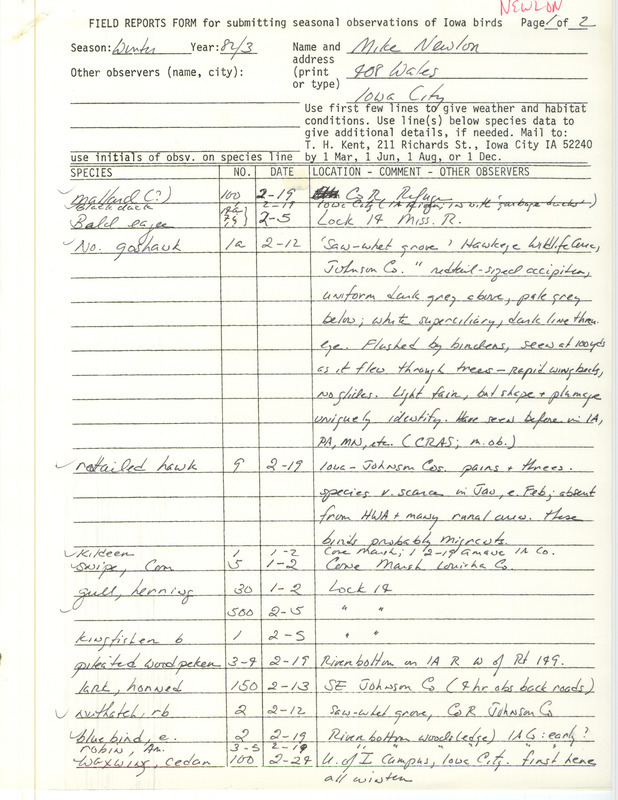 NEWLON
FIELD REPORTS FORM for submitting seasonal observations of Iowa birds Page 1 of 2
Season: Winter Year: 82/3 Name and Mike Newlon
address
Other observers (name, city): (print 408 Wales
or type)
Iowa City
Use first few lines to give weather and habitat
conditions. Use line(s) below species data to
give additional details, if needed. Mail to:
T. H. Kent, 211 Richards St., Iowa City IA 52240
use initials of obsv. on species line by 1 Mar, 1 Jun, 1 Aug, or 1 Dec.
SPECIES NO. DATE LOCATION - COMMENT - OTHER OBSERVERS
mallard (?) 100 2-19 CoR Refuge
black duck 2-19 Iowa City (in with "garbage ducks")
Bald eagle 2-5 Lock 14 Miss. R.
No. goshawk 1a 2-12 'Saw-whet grove' Hawkeye Wildlife Area,
Johnson Co. " redtail-sized accipiter,
uniform dark grey above, pale grey
below; white superciliary, dark line thru
eye. Flushed by birders, seen at 100yds
as it flew through trees - rapid wingbeats,
no glides. Light fair, but shape + plumage
uniquely identify. Have seen before in IA,
PA, MN, etc. (CRAS; m.ob.)
redtailed hawk 9 2-19 Iowa - Johnson Cos. pairs + threes.
species v. scarce in Jan, e. Feb; absent
from HWA + many rural areas. these
birds probably migrants.
Kildeer 1 1-2 Cone Marsh; 1 2-19 Amana IA Co.
snipe, Com 5 1-2 Cone Marsh Louisa Co.
gull, herring 30 1-2 Lock 14
500 2-5 " "
kingfisher b 1 2-5 " "
pileated woodpeker 3-4 2-19 River bottom on IA R W of Rt 149.
lark, horned 150 2-13 SE Johnson Co (4 hr obs back roads)
nuthatch, rb 2 2-12 Saw-whet grove, CoR Johnson Co
bluebird, e. 2 2-19 River bottom woods (edge) IA Co: early?
robin, Am. 3-5 2-19 " " " "
Waxwing, cedar 100 2-24 U. of I Campus, Iowa City. first here
all winter